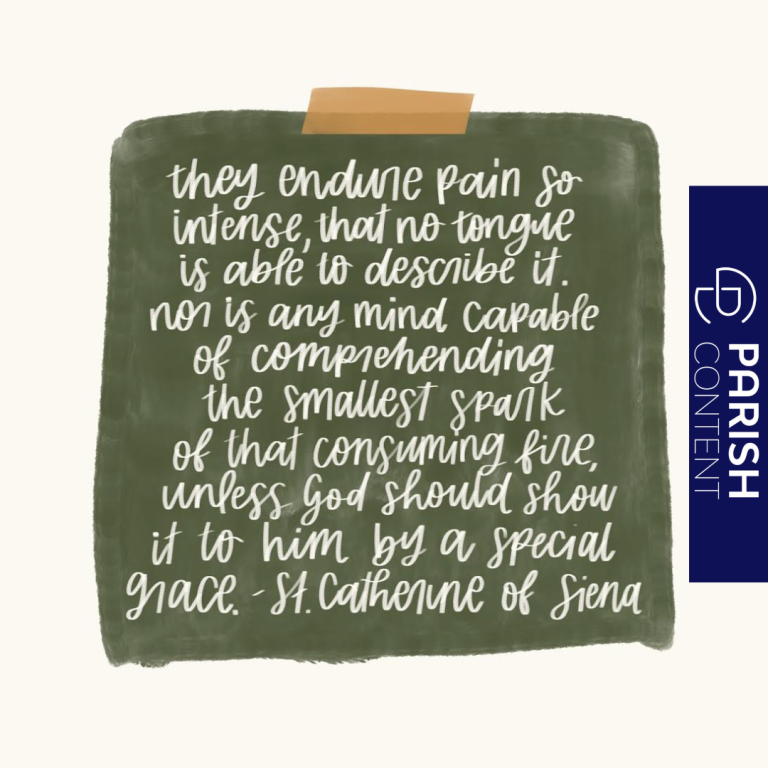 they endure pain so
intense, that no tongue
is able to describe it.
nor is any mind capable
of comprehending
the smallest spark
of that consuming fire,
unless God should show
it to him by a special
grace. - St. Catherine of Siena
PARISH
CONTENT